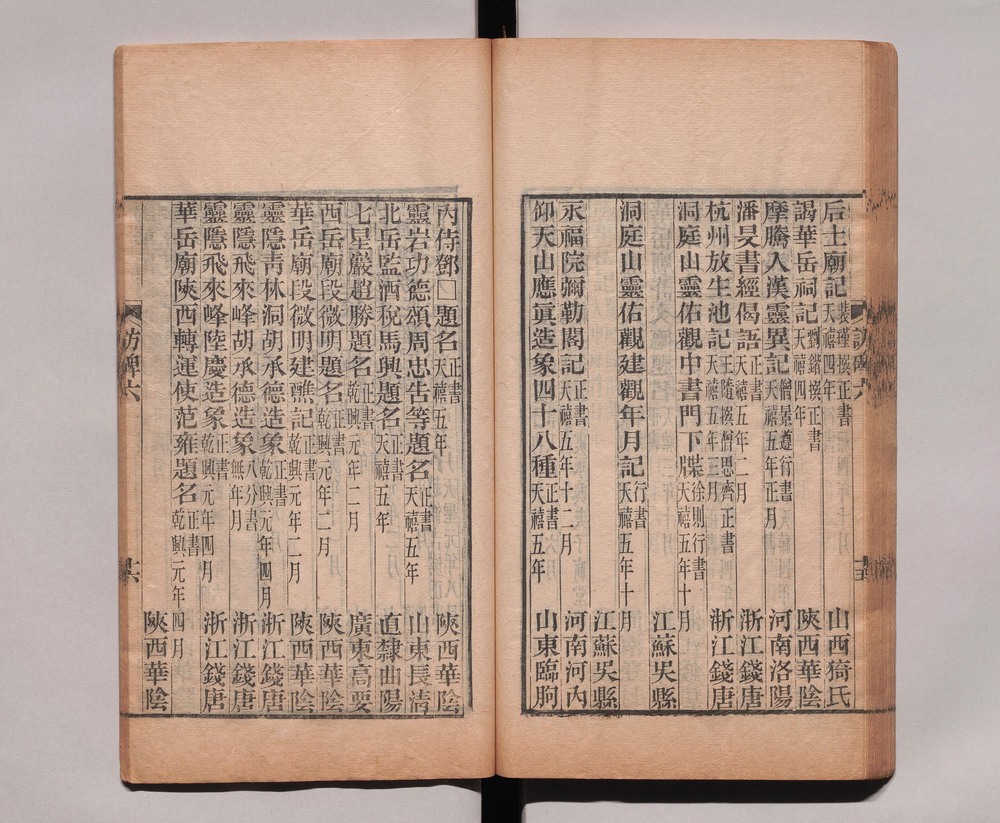 后土廟記裴瑾撰正書天禧四年山西猗氏
謁華岳祠記劉鍇撰正書天禧四年陝西華陰
摩騰入漢靈異記僧景遵行書天禧五年正月河南洛陽
潘旻書經偈語正書天禧五年二月浙江錢唐
杭州放生池記王隨撰僧思齊正書天禧五年三月浙江錢唐
洞庭山靈佑觀中書門下牒徐則行書天禧五年十月
江蘇吳縣
洞庭山靈佑觀建觀年月記行書天禧五年十月
江蘇吳縣
永福院彌勒閣記正書天禧五年十二月河南河內
仰天山應眞造象四十八種正書天禧五年山東臨朐
內侍鄧□題名正書天禧五年陝西華陰
靈岩功德頌周忠告等題名正書天禧五年山東長清
北岳監酒稅馬興題名正書天禧五年直隸曲陽
七星巖趙勝題名正書乾興元年二月廣東高要
西岳廟段微明題名正書乾興元年二月陝西華陰
華岳廟段微明建醮記正書乾興元年二月陝西華陰
靈隱青林洞胡承德造象正書乾興元年四月浙江錢唐
靈隱飛來峰胡承德造象八分書無年月浙江錢唐
靈隱飛來峰陸慶造象正書乾興元年四月浙江錢唐
華岳廟陝西轉運使范雍題名正書乾興元年四月
陝西華陰
訪碑六
十六